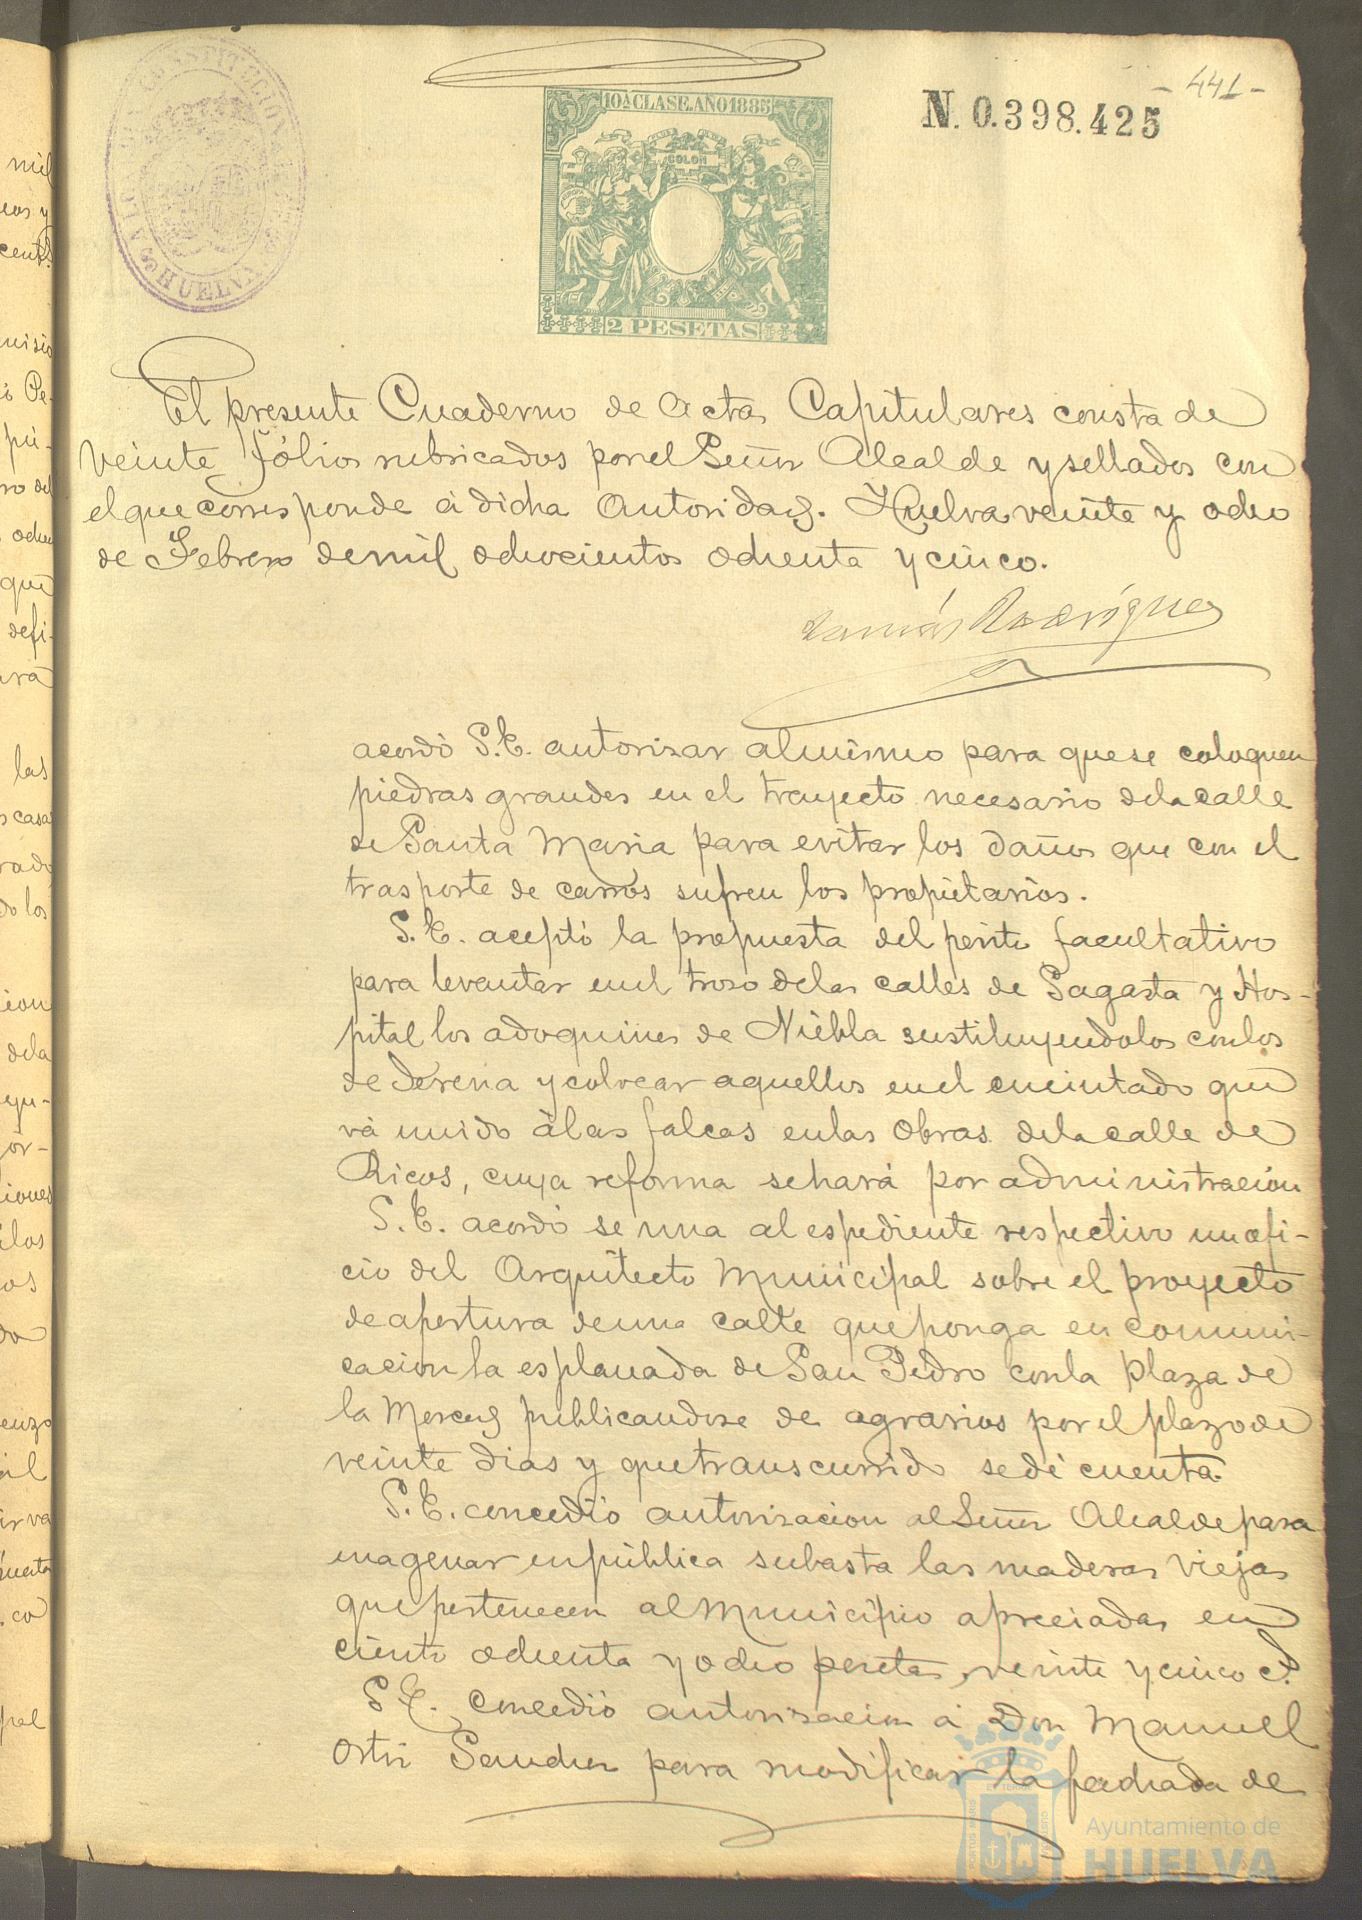 - 441 -
N. 0.398.425
ALCALDIA CONSTITUCIONAL DE HUELVA
10ª CLASE. AÑO 1885
COLON
2 PESETAS
El presente Cuaderno de Actas Capitulares consta de
veinte fólios rubricados por el Señor Alcalde y sellados con
el que corresponde á dicha Autoridad. Huelva veinte y ocho
de Febrero de mil ochocientos ochenta y cinco.
Rodriguez
acordó S.E. autorizar al mismo para que se coloquen
piedras grandes en el trayecto necesario de la calle
de Santa Maria para evitar los daños que con el
trasporte de carros sufren los propietarios.
S.E. aceptó la propuesta del perito facultativo
para levantar en el troso de las calles de Sagasta y Hos-
pital los adoquines de Niebla sustituyendolos con los
de Gerena y colocar aquellos en el encintado que
vá unido á las falcas en las obras de la calle de
Ricos, cuya reforma se hará por administracion
S.E. acordó se una al espediente respectivo un ofi-
cio del Arquitecto Municipal sobre el proyecto
de apertura de una calle que ponga en comuni-
cacion la esplanada de San Pedro con la Plaza de
la Merced publicandose de agravios por el plazo de
veinte dias y que transcurrido se dé cuenta.
S.E. concedió autorizacion al Señor Alcalde para
enagenar en pública subasta las maderas viejas
que pertenecen al Municipio apreciadas en
ciento ochenta y ocho pesetas, veinte y cinco c.
S.E. concedió autorizacion á Don Manuel
Ortiz Sanchez para modificar la fachada de
Ayuntamiento de
HUELVA